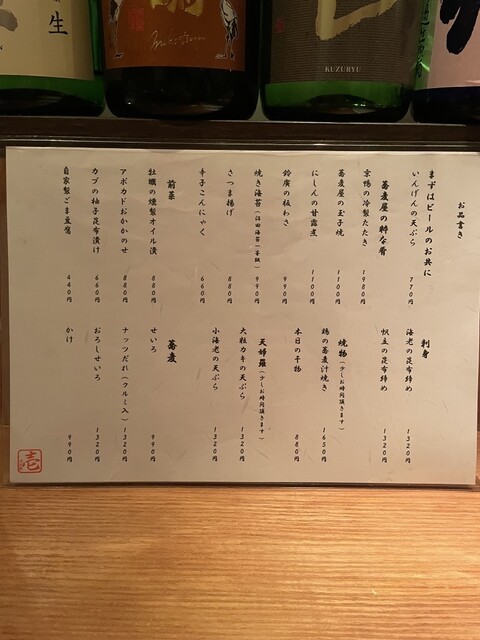 生
KUZURYU
お品書き
まずはビールのお共に
いんげんの天ぷら 770円
蕎麦屋の粋な肴
京鴨の冷製たたき 1980円
蕎麦屋の玉子焼 1100円
にしんの甘露煮 1100円
鈴廣の板わさ 990円
焼き海苔 990円
さつま揚げ 880円
辛子こんにゃく 660円
前菜
牡蠣の燻製オイル漬 880円
アボカドおかかのせ 880円
カブの柚子昆布漬け 660円
自家製ごま豆腐 440円
刺身
海老の昆布締め 1320円
帆立の昆布締め 1320円
焼物（少しお時間頂きます）
鶏の蕎麦汁焼き 1650円
本日の干物 880円
天婦羅（少しお時間頂きます）
大粒カキの天ぷら 1320円
小海老の天ぷら 1320円
蕎麦
せいろ 990円
ナッツだれ（クルミ入） 1320円
おろしせいろ 1320円
かけ 990円
壱